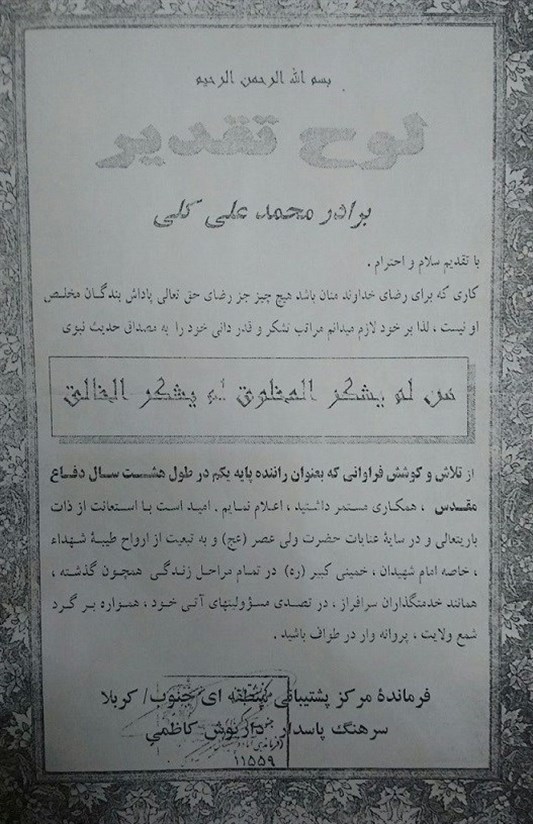 بسم الله الرحمن الرحیم
لوح تقدیر
برادر محمد علی گلی
با تقدیم سلام و احترام .
کاری که برای رضای خداوند منان باشد هیچ چیز جز رضای حق تعالی پاداش بندگان مخلص
او نیست ، لذا بر خود لازم میدانم مراتب تشکر و قدر دانی خود را به مصداق حدیث نبوی
من لم یشکر المخلوق لم یشکر الخالق
از تلاش و کوشش فراوانی که بعنوان راننده پایه یکم در طول هشت سال دفاع
مقدس ، همکاری مستمر داشتید ، اعلام نمایم . امید است با استعانت از ذات
باریتعالی و در سایهٔ عنایات حضرت ولی عصر (عج) و به تبعیت از ارواح طیبهٔ شهداء
، خاصه امام شهیدان ، خمینی کبیر (ره) در تمام مراحل زندگی همچون گذشته ،
همانند خدمتگذاران سرافراز ، در تصدی مسؤولیتهای آتی خود ، همواره بر گرد
شمع ولایت ، پروانه وار در طواف باشید .
فرماندهٔ مرکز پشتیبانی منطقه ای جنوب/ کربلا
سرهنگ پاسدار داریوش کاظمی
۱۱۵۵۹